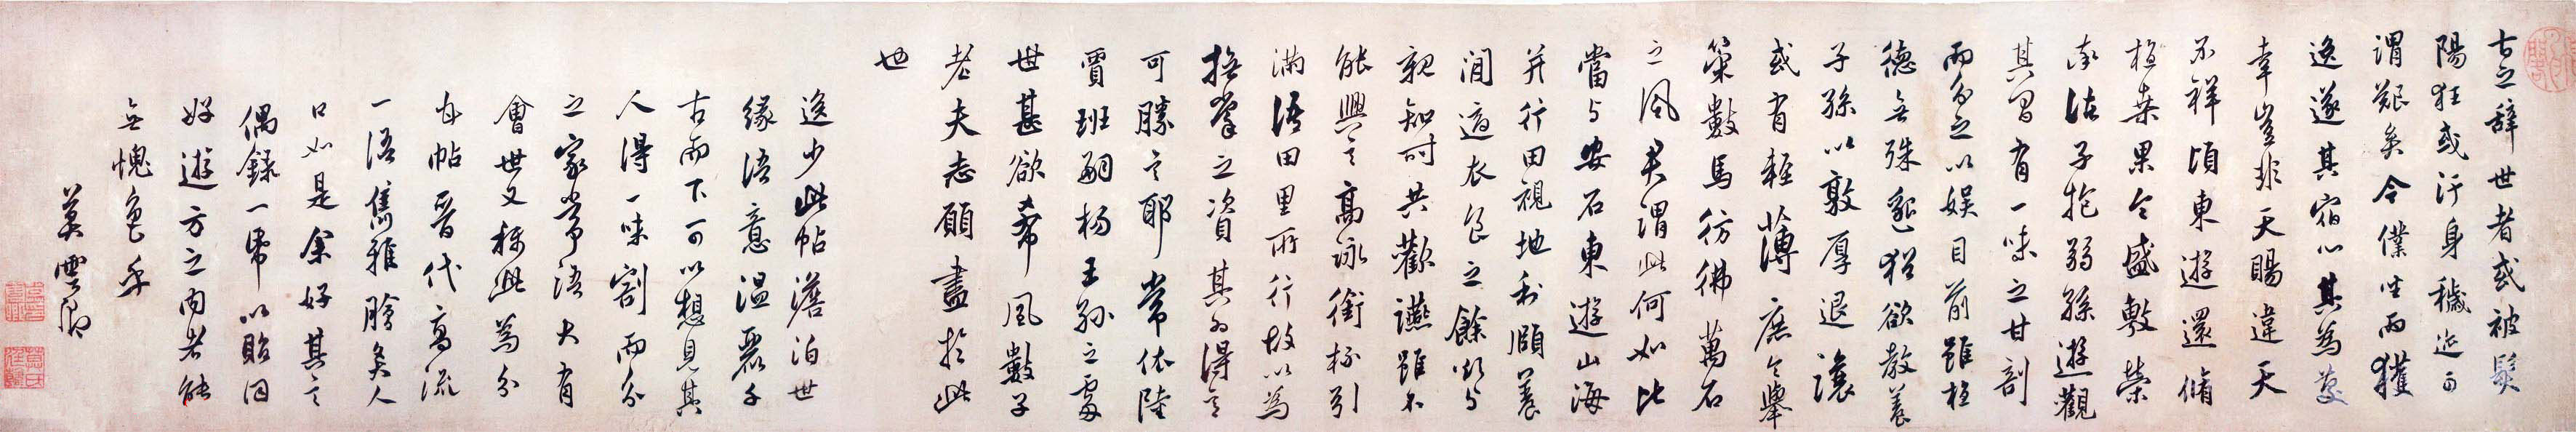 古之辭世者或被髮
陽狂或汙身穢迹可
謂艱矣今僕坐而獲
逸遂其宿心其為慶
幸豈非天賜違天
不祥頃東遊還脩
植桑果今盛敷榮
率諸子抱弱孫遊觀
其間有一味之甘割
而分之以娛目前雖植
德無殊邈猶欲教養
子孫以敦厚退讓
或有輕薄庶令舉
策數馬彷彿萬石
之風君謂此何如比
當與安石東遊山海
并行田視地利頤養
閒適衣食之餘欲與
親知時共歡讌雖不
能興言高詠銜杯引
滿語田里所行故以為
撫掌之資其為得意
可勝言耶常依陸
賈班嗣楊王孫之處
世甚欲希風數子
老夫志願盡於此
也
逸少此帖澹泊世
緣語意溫麗千
古而下可以想見其
人得一味割而分
之家常語大有
會世又稱此為分
甘帖晉代高流
一語雋雅膾炙人
口如是余好其言
偶錄一帋以貽同
好遊方之內者能
無愧色乎
莫雲卿